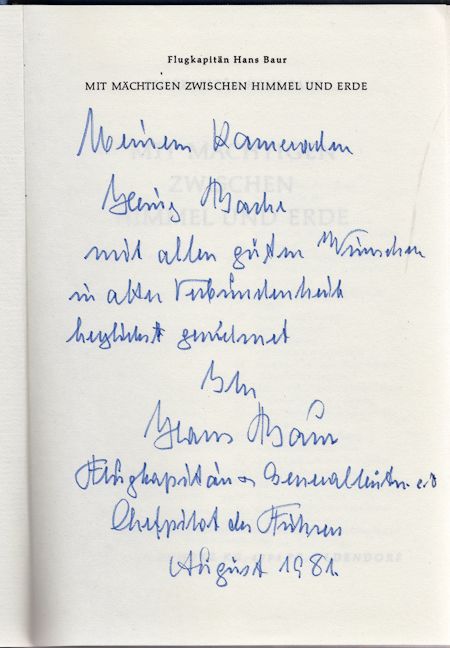 Flugkapitän Hans Baur
MIT MÄCHTIGEN ZWISCHEN HIMMEL UND ERDE
Meinem Kameraden
mit allen guten Wünschen
in alter Verbundenheit
herzlichst gewidmet
Ihr
Hans Baur
Flugkapitän u Generalleutn. a.D
Chefpilot des Führers
August 1981.